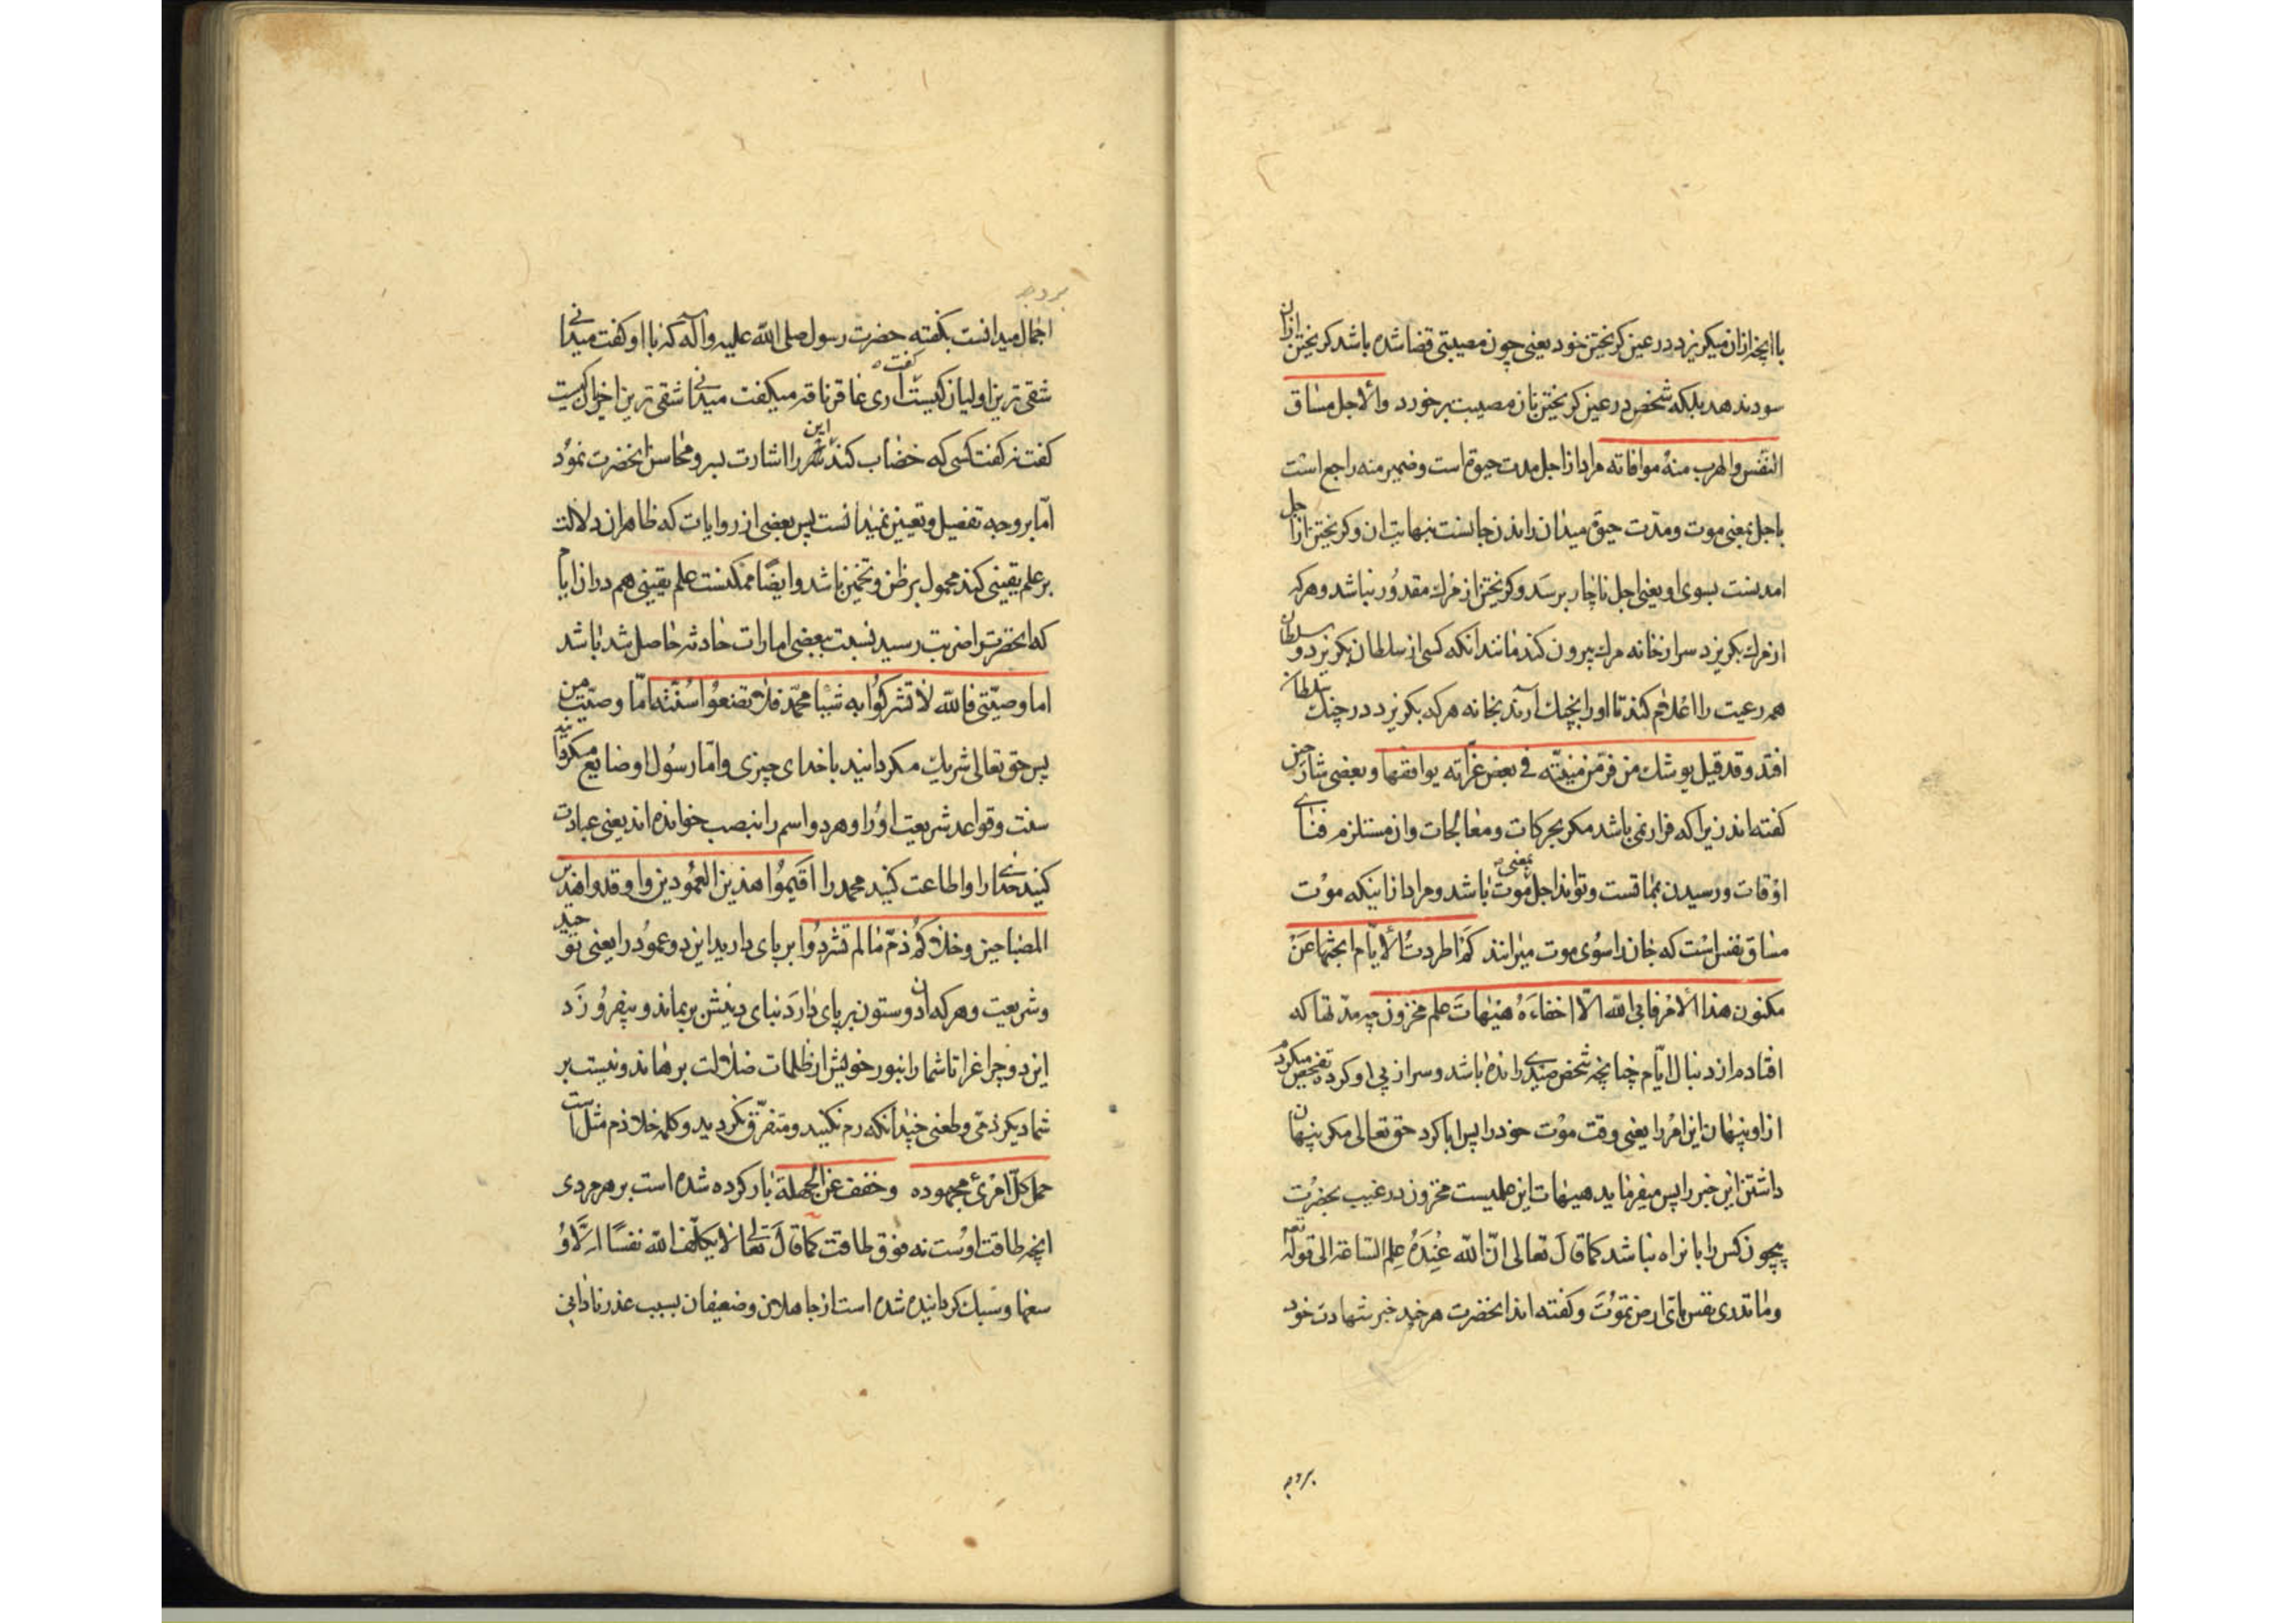 با انچه ازان میکریزد در عین کریختن خود یعنی چون مصیبتی قضا شده باشد کریختن ازان
سود ندهد بلکه شخص در عین کریختن بان مصیبت برخورد والاجل مساق
النفس والهرب منه موافاته مراد از اجل مدت حیوة است و ضمیر منه راجع است
باجل بمعنی موت و مدّت حیوة میدان راندن جانست بنهایت ان و کریختن از اجل
امدنست بسوی او یعنی اجل ناچار برسد و کریختن از مرک مقدور نباشد و هرکه
از مرک بکریزد سر از خانه مرک بیرون کند مانند انکه کسی از سلطان بکریزد و سلطان
همه رعیت را اعلام کند تا او را بچنک آرند بخانه هرکه بکریزد در چنک سلطان
افتد وقد قیل یوشك من فرّ من منیّته فی بعض غرّاته یوافقها و بعضی شارحین
کفته اند زیرا که فرار نمی باشد مکر بحرکات و معالجات و ان مستلزم فنای
اوقات و رسیدن بمماتست و تواند اجل بمعنی موت باشد و مراد از اینکه موت
مساق نفس است که جان را سوی موت میراند کم اطردت الایّام ابحثها عن
مکنون هذا الامر فابی الله الّا اخفاءه هیهات علم مخزون چه مدّتها که
افتادم از دنبال ایّام چنانچه شخص صیدی رانده باشد و سر از پی او کرده تفحص میکردم
از او پنهان این امر را یعنی وقت موت خود را پس ابا کرد حق تعالی مکر پنهان
داشتن این خبر را پس میفرماید هیهات این علمیست مخزون در غیب بحضرت
بیچون کس را بانراه نباشد کما قال تعالی انّ الله عنده علم الساعة الی قوله تعه
وما تدری نفس بای ارض تموت و کفته اند انحضرت هرچند خبر شهادت خود
بروجه
بروجه
اجمال میدانست بکفته حضرت رسول صلی الله علیه وآله که با او کفت میدانی
شقی ترین اولیان کیست کفت آری عاقر ناقه میکفت میدانی شقی ترین اخیران کیست
کفت نه کفت کسی که خضاب کند این را اشارت بسر و محاسن انحضرت نمود
امّا بروجه تفصیل و تعیین نمیدانست پس بعضی از روایات که ظاهر ان دلالت
بر علم یقینی کند محمول بر ظن و تخمین باشد و ایضًا ممکنست علم یقینی هم در ان ایام
که انحضرت را ضربت رسید نسبت ببعضی امارات حادثه حاصل شد باشد
اما وصیّتی فالله لا تشرکوا به شیئا محمّد فلا تضعوا سنّته امّا وصیّت من
پس حق تعالی شریك مکردانید با خدای چیزی و امّا رسول او ضایع مکردانید
سنت و قواعد شریعت او را و هر دو اسم را بنصب خوانده اند یعنی عبادت
کنید خدای را و اطاعت کنید محمد را اقیموا هذین العمودین و اوقدوا هذین
المصباحین وخلاکم ذمّ مالم تشردوا بر پای دارید این دو عمود را یعنی توحید
و شریعت و هرکه ان دو ستون بر پای دارد بنای دینش بر بماند و بیفروزد
این دو چراغ را تا شما را بنور خویش از ظلمات ضلالت برهاند و نیست بر
شما دیکر ذمّی و طعنی چندانکه رم نکنید و متفرّق نکردید و کلمه خلا ذم مثل است
حمل کلّ امرئ مجهوده وخفف عن الجهلة بار کرده شده است بر هر مردی
انچه طاقت اوست نه فوق طاقت کما قال تعالی لا یکلّف الله نفسًا الّا و
سعها و سبك کردانیده شده است از جاهلان و ضعیفان بسبب عذر نادانی